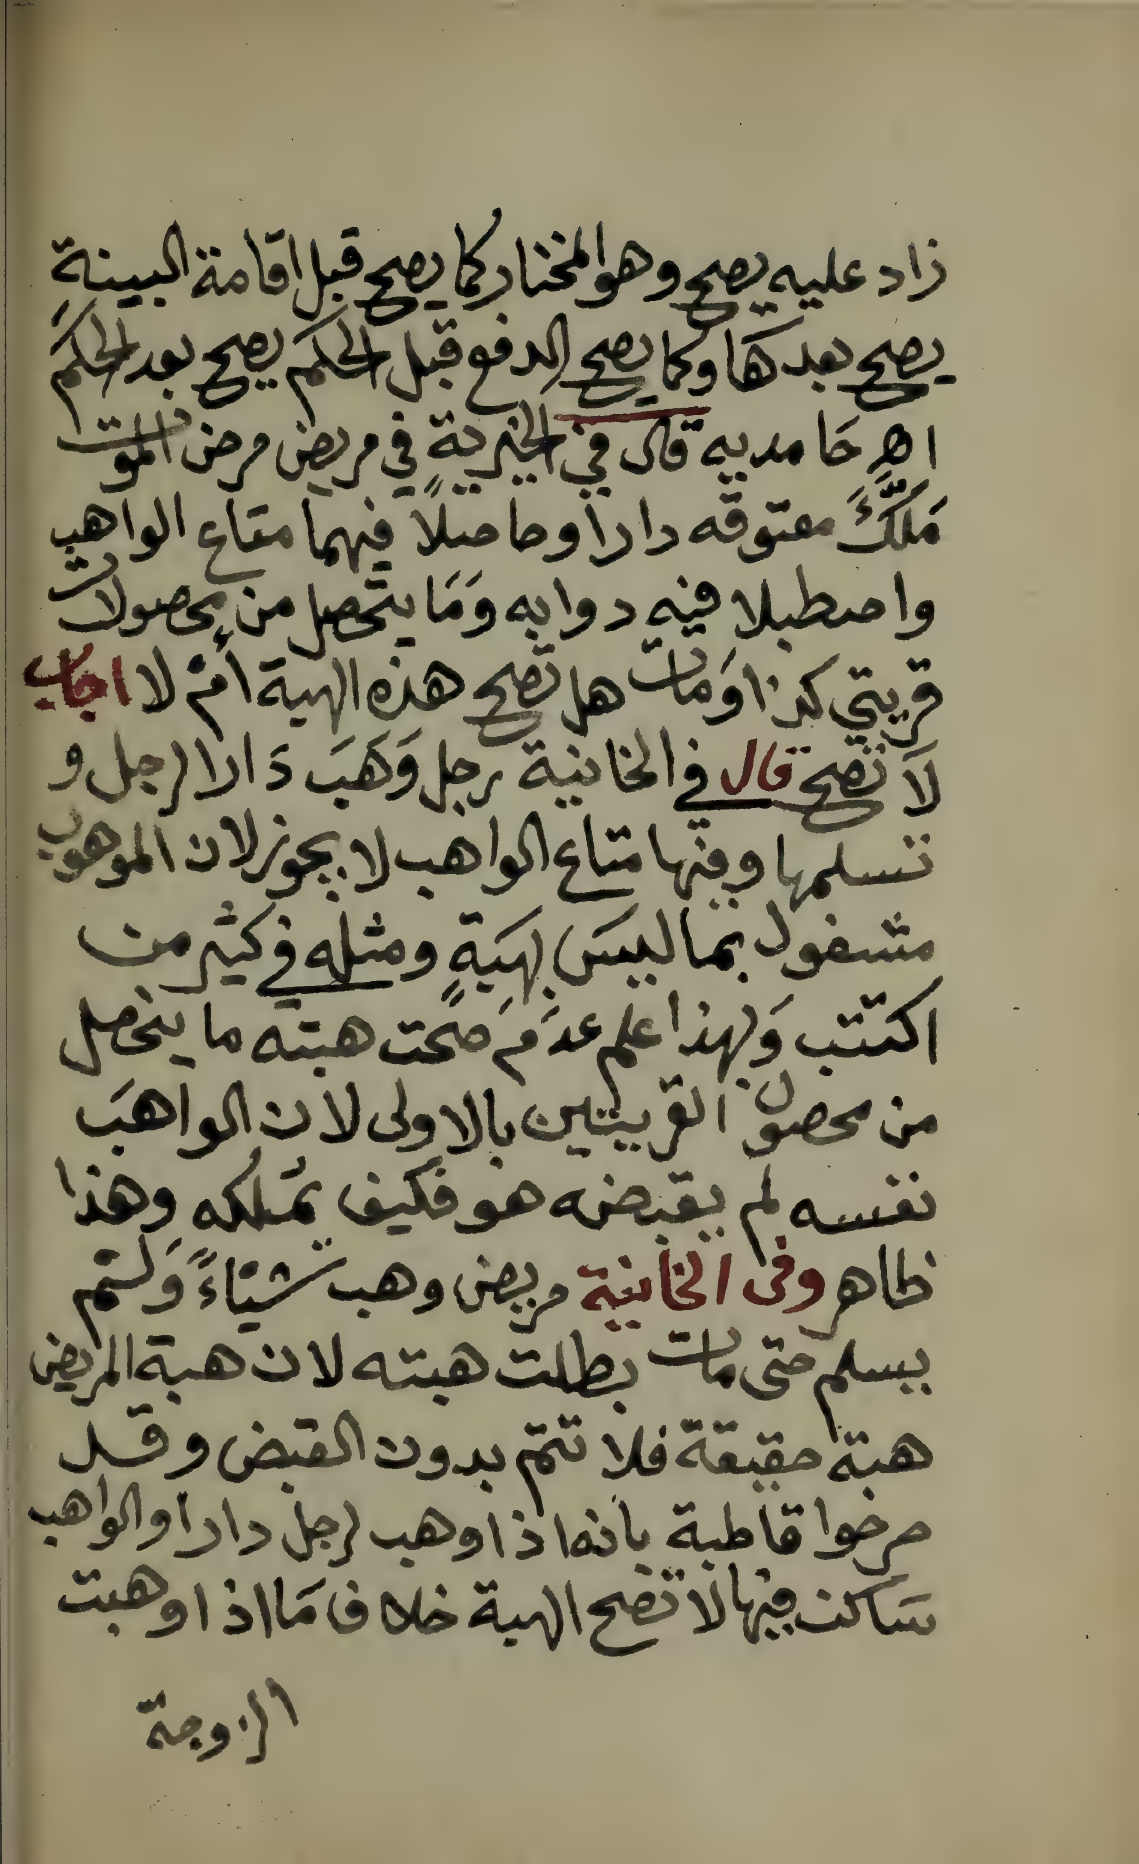 زاد عليه يصح وهو المختار كما يصح قبل اقامة البينةِ
يصح بعدها وكما يصح الدفع قبل الحكم يصح بعد الحكم
اهـ حَامديه قال في الخيريةٍ في مريض مرض الموت
مَلَّكَ معتوقه داراً وحاصلاً فيهما متاع الواهب
واصطبلا فيه دوابه وَمَا يتحصل من محصولات
قريتي كذا وَمات هل تصح هذه الهبة أمْ لا اجاب
لَا تصح قال في الخانية رجل وَهَبَ دَارا لرجل و
تسلمها وفيها متاع الواهب لا يجوز لان الموهوب
مشغول بما ليسَ بهبَةٍ ومثله في كثير من
اكتتب وَبهذا علم عدَمَ صَحت هبته ما يتحصل
من محصول القريتين بالاولى لان الواهبَ
نفسه لم يقبضه هو فكيف يمُلكه وهذا
ظاهر وفى الخانية مريض وهب شيئاءً وَلم
يسلم حتى مات بطلت هبته لان هبة المريض
هبة حقيقة فلا تتم بدون القبض وقد
صرحوا قاطبة بانه اذا وهب لرجل دارا والواهب
سَاكن فيها لا تصح الهبة خلاف مَا اذا وهبت
الزوجة